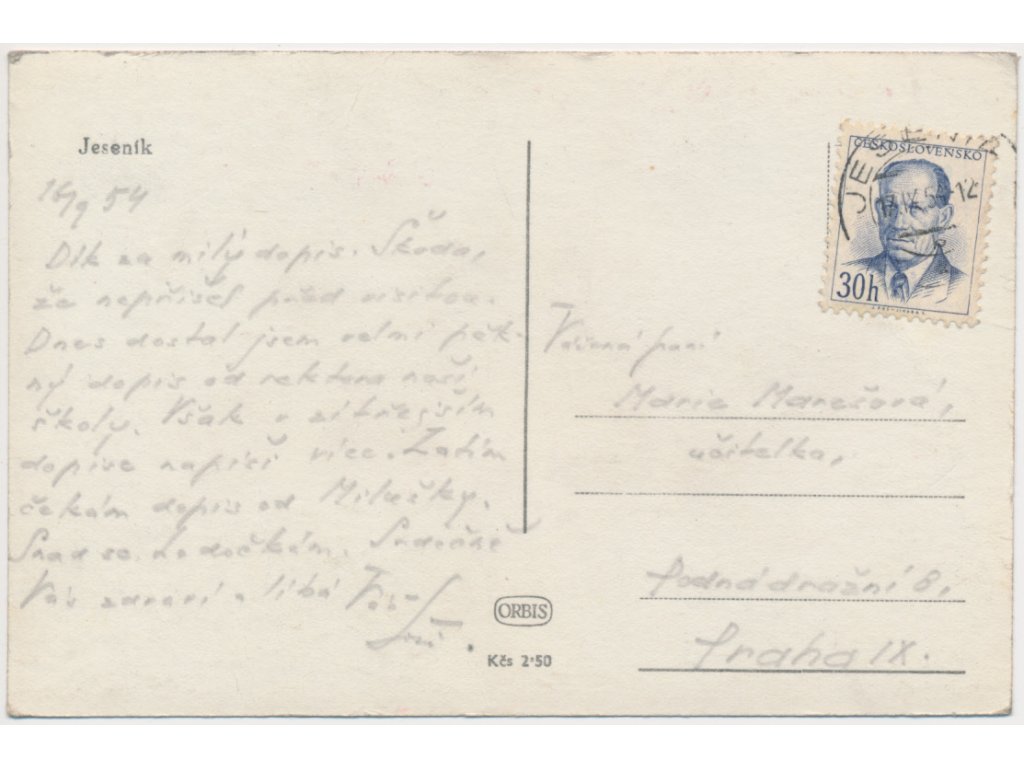 Jeseník
16/9 54
Dík za milý dopis. Škoda,
že nepřišel před visitou.
Dnes dostal jsem velmi pěk-
ný dopis od rektora naší
školy. Však v zítřejším
dopise napíši více. Zatím
čekám dopis od Milušky.
Snad se ho dočkám. Srdečně
Vás zdraví a líbá Váš
ORBIS
Kčs 2·50
ČESKOSLOVENSKO
30h
JESENÍK
17.IX.54-12
Vážená paní
Marie Marešová,
učitelka,
Podnádražní 6,
Praha IX.